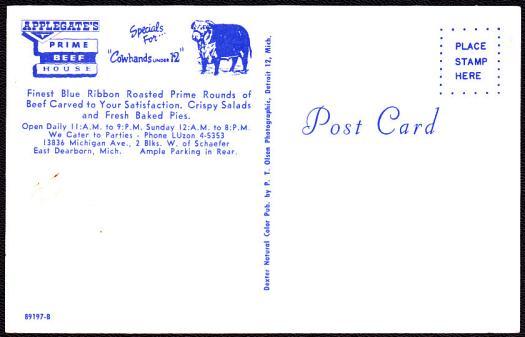 APPLEGATE'S
PRIME
BEEF
HOUSE
Specials
For...
"Cowhands UNDER 12"
Finest Blue Ribbon Roasted Prime Rounds of
Beef Carved to Your Satisfaction. Crispy Salads
and Fresh Baked Pies.
Open Daily 11:A.M. to 9:P.M. Sunday 12:A.M. to 8:P.M.
We Cater to Parties - Phone LUzon 4-5353
13836 Michigan Ave., 2 Blks. W. of Schaefer
East Dearborn, Mich. Ample Parking in Rear.
89197-B
Dexter Natural Color Pub. by P. T. Olsen Photographic, Detroit 12, Mich.
Post Card
PLACE
STAMP
HERE